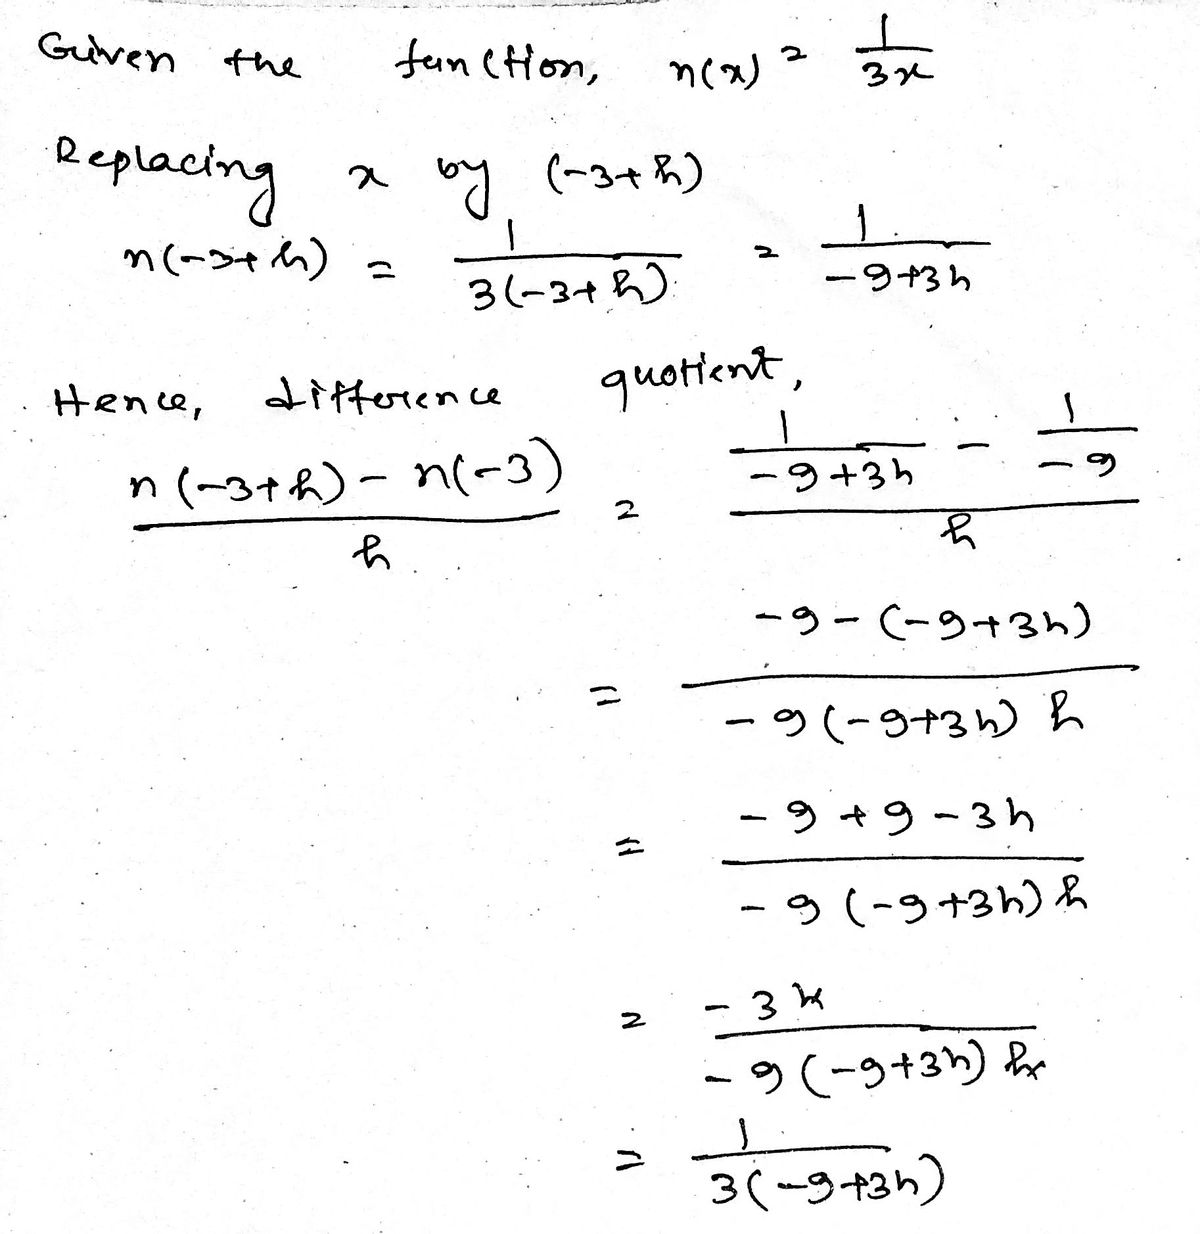 Given the function, n(x) = 1/3x
Replacing x by (-3+h)
n(-3+h) = 1/3(-3+h) = 1/-9+3h
Hence, difference quotient,
n(-3+h) - n(-3)/h = 1/-9+3h - 1/-9/h
= -9-(-9+3h)/-9(-9+3h) h
= -9+9-3h/-9(-9+3h) h
= -3h/-9(-9+3h) h
= 1/3(-9+3h)